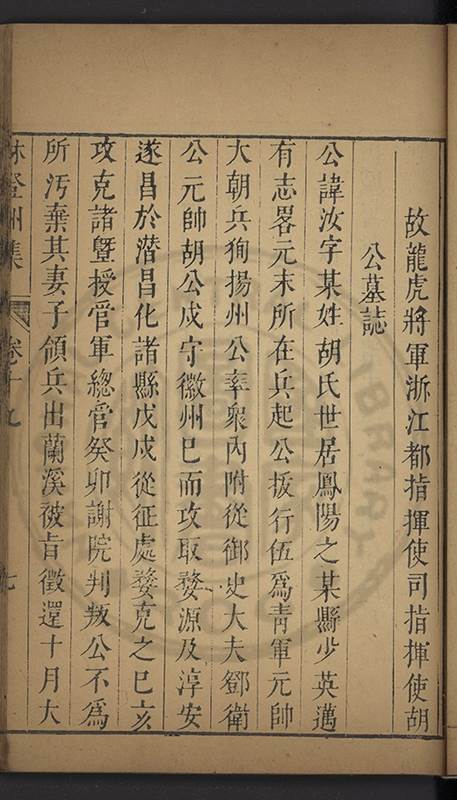 故龍虎將軍浙江都指揮使司指揮使胡
公墓誌
公諱汝字某姓胡氏世居鳳陽之某縣少英邁
有志畧元末所在兵起公拔行伍爲青軍元帥
大朝兵狥揚州公率衆內附從御史大夫鄧衛
公元帥胡公戍守徽州巳而攻取婺源及淳安
遂昌於潜昌化諸縣戊戌從征處婺克之巳亥
攻克諸曁授官軍總管癸卯謝院判叛公不爲
所汚棄其妻子領兵出蘭溪被旨徵還十月大
林登州集 卷十九 七